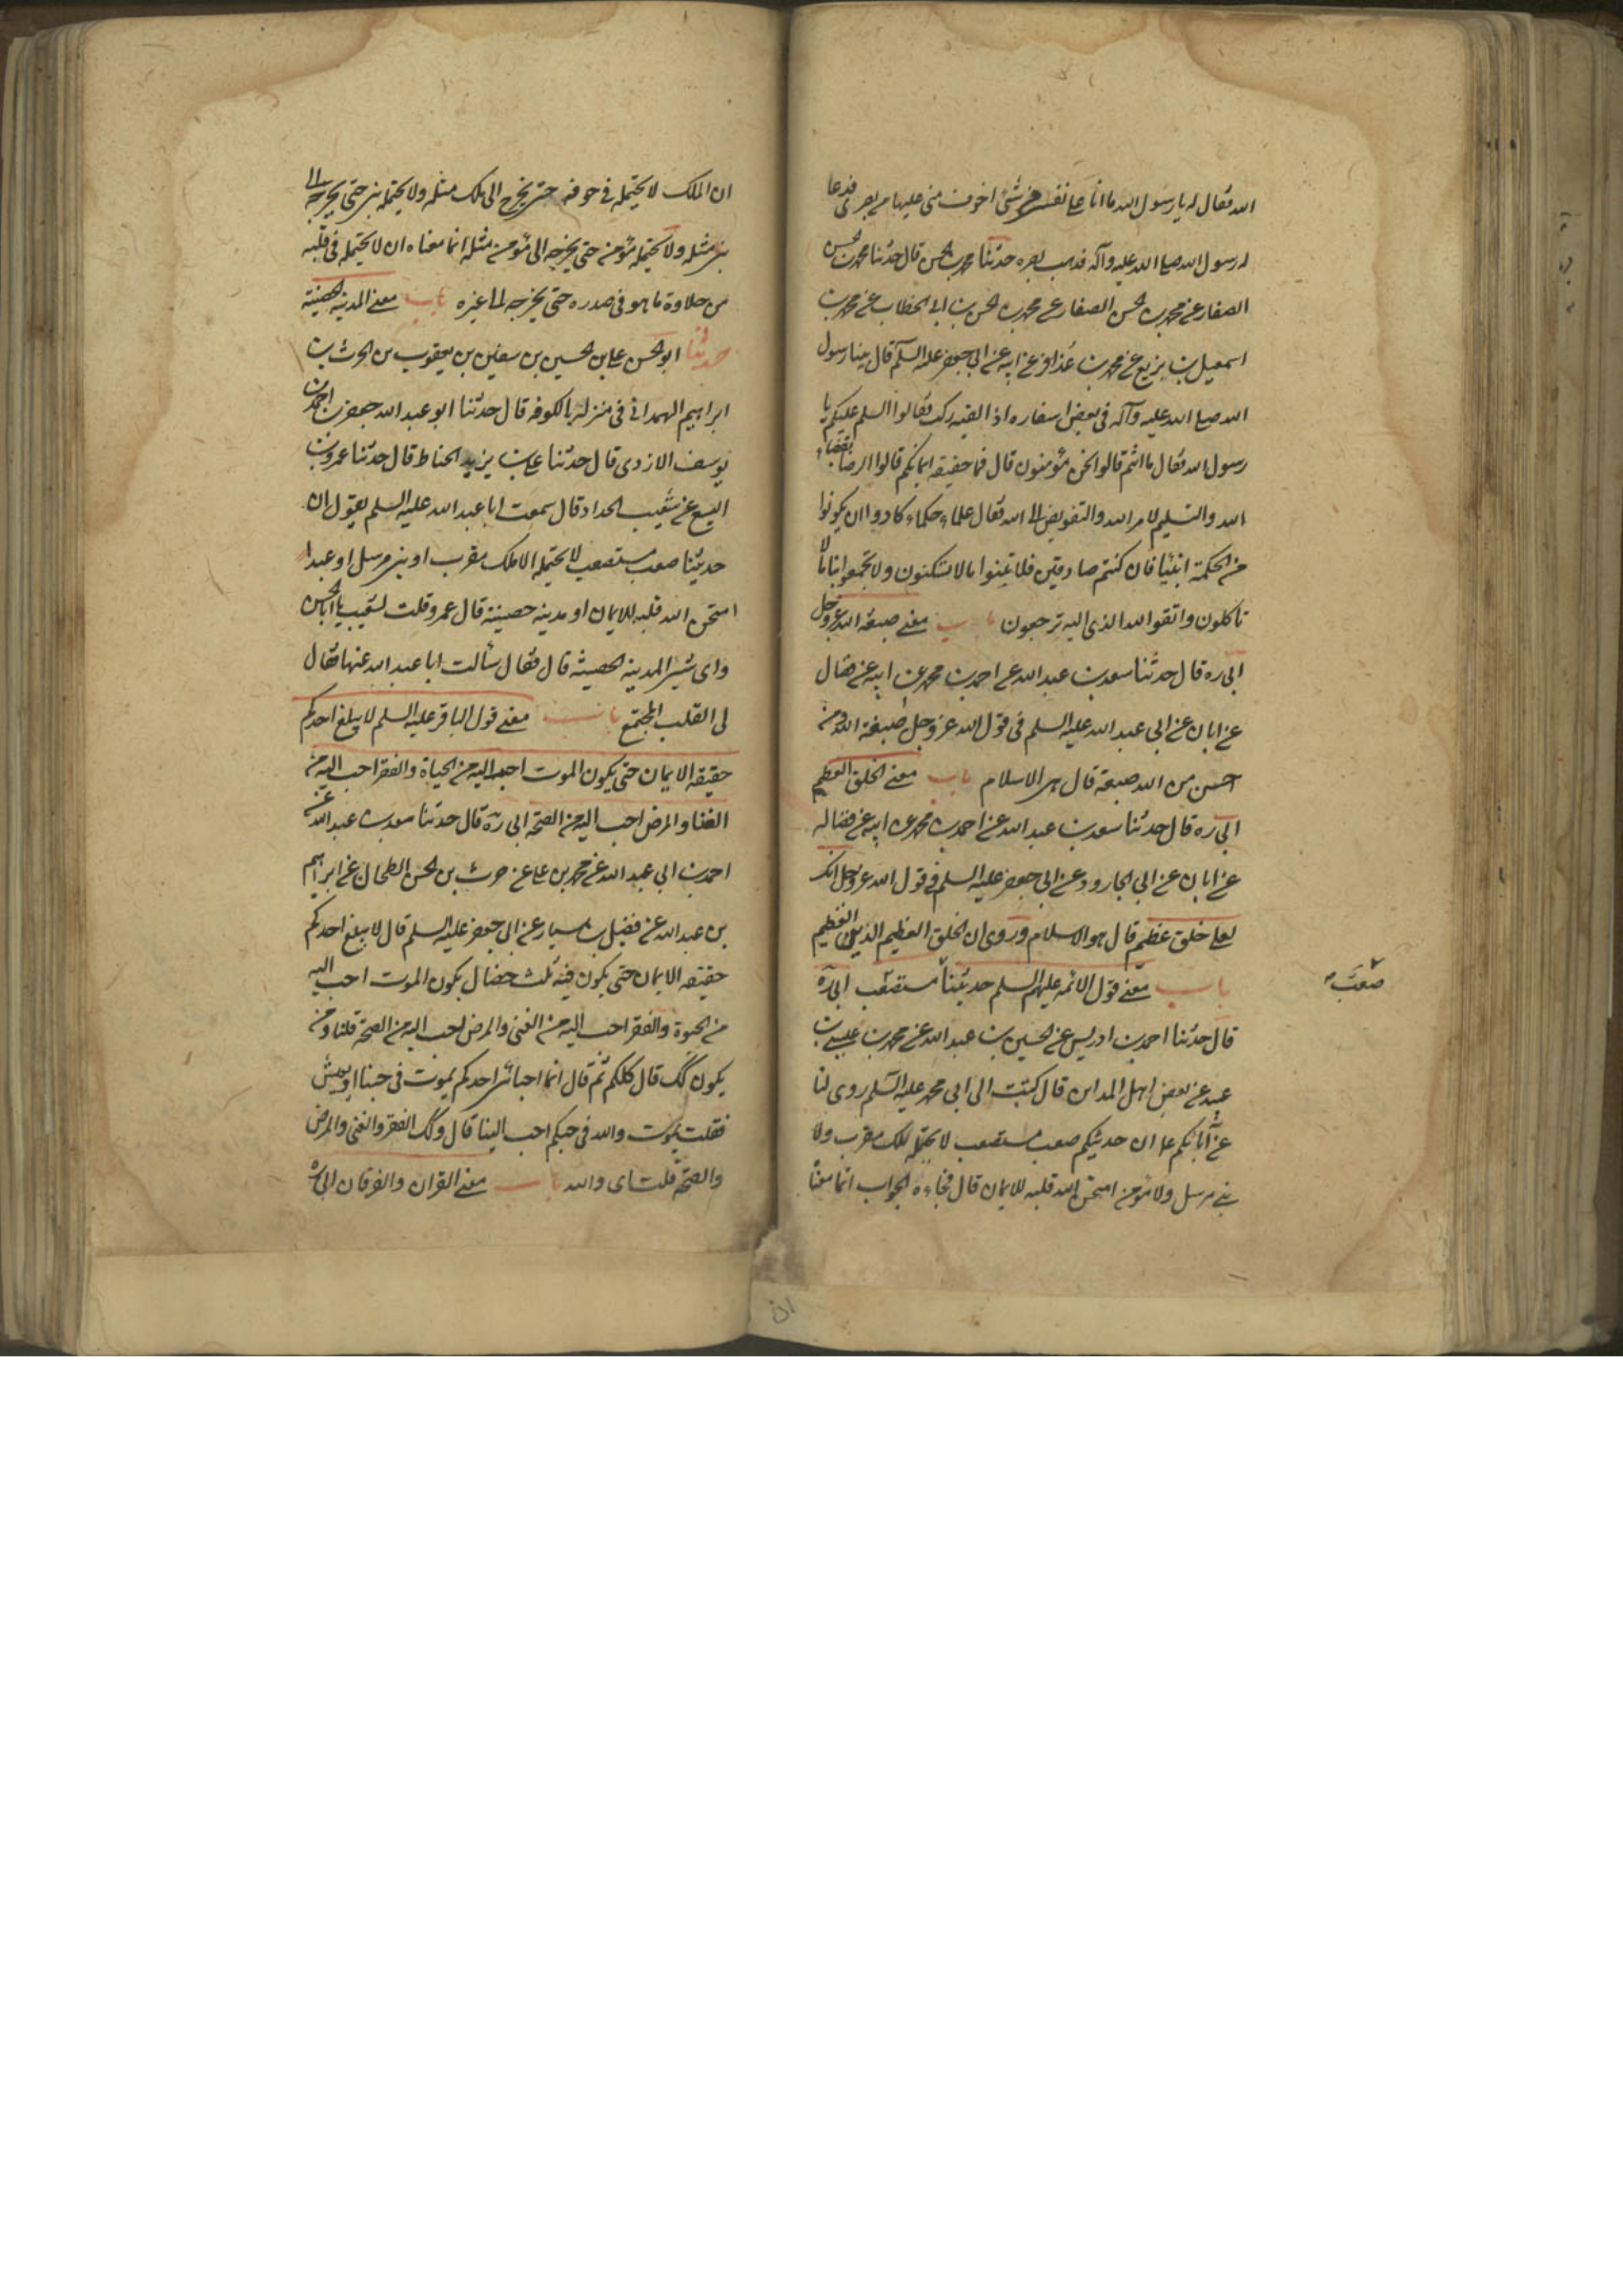 الله فقال له يا رسول الله ما انا على نفسي من شئ اخوف مني عليها من بصري فدعا
له رسول الله صلى الله عليه وآله فذهب بصره حدثنا محمد بن الحسن قال حدثنا محمد بن الحسن
الصفار عن محمد بن الحسن الصفار عن محمد بن الحسن بن ابى الخطاب عن محمد بن
اسمعيل بن بزيع عن محمد بن عذافر عن ابيه عن ابى جعفر عليه السلم قال بينا رسول
الله صلى الله عليه وآله فى بعض اسفاره اذا لقيه ركب فقالوا السلم عليكم يا
رسول الله فقال ما انتم قالوا نحن مؤمنون قال فما حقيقة ايمانكم قالوا الرضا بقضاء
الله والتسليم لامر الله والتفويض الى الله فقال علماء حكماء كادوا ان يكونوا
من الحكمة انبياء فان كنتم صادقين فلا تبنوا مالا تسكنون ولا تجمعوا ما لا
تاكلون واتقوا الله الذى اليه ترجعون باب معنى صبغة الله عز وجل
ابى ره قال حدثنا سعد بن عبد الله عن احمد بن محمد عن ابيه عن فضال
عن ابان عن ابى عبد الله عليه السلم فى قول الله عز وجل صبغة الله ومن
احسن من الله صبغة قال هى الاسلام باب معنى الخلق العظيم
ابى ره قال حدثنا سعد بن عبد الله عن احمد بن محمد عن ابيه عن فضاله
عن ابان عن ابى الجارود عن ابى جعفر عليه السلم فى قول الله عز وجل انك
لعلى خلق عظيم قال هو الاسلام وروى ان الخلق العظيم الدين العظيم
باب معنى قول الائمه عليهم السلم حديثنا مستصعب ابى ره
صعب
قال حدثنا احمد بن ادريس عن الحسين بن عبد الله عن محمد بن عيسى بن
عبيد عن بعض اهل المداين قال كتبت الى ابى محمد عليه السلم روى لنا
عن آبائكم ان حديثكم صعب مستصعب لا يحتمله ملك مقرب ولا
نبى مرسل ولا مؤمن امتحن الله قلبه للايمان قال فجاءه الجواب انما معناه
ان الملك لا يحتمله فى جوفه حتى يخرجه الى ملك مثله ولا يحتمله نبى حتى يخرجه الى
نبى مثله ولا يحتمله مؤمن حتى يخرجه الى مؤمن مثله انما معناه ان لا يحتمله فى قلبه
من حلاوة ما هو فى صدره حتى يخرجه الى غيره باب معنى المدينة الحصينة
حدثنا ابو الحسن على بن الحسين بن سفين بن يعقوب بن الحرث بن
ابراهيم الهمدانى فى منزله بالكوفه قال حدثنا ابو عبد الله جعفر بن احمد بن
يوسف الازدى قال حدثنا على بن يزيد الحناط قال حدثنا عمرو بن
اليسع عن شعيب الحداد قال سمعت ابا عبد الله عليه السلم يقول ان
حديثنا صعب مستصعب لا يحتمله الا ملك مقرب او نبى مرسل او عبد
امتحن الله قلبه للايمان او مدينه حصينة قال عمرو قلت لشعيب يا ابا الحسن
واى شئ المدينه الحصينة قال فقال سألت ابا عبد الله عنها فقال
لى القلب المجتمع باب معنى قول الباقر عليه السلم لا يبلغ احدكم
حقيقة الايمان حتى يكون الموت احب اليه من الحياة والفقر احب اليه من
الغنا والمرض احب اليه من الصحة ابى ره قال حدثنا سعد بن عبد الله عن
احمد بن ابى عبد الله عن محمد بن على عن حرث بن الحسن الطحان عن ابراهيم
بن عبد الله عن فضيل بن يسار عن ابى جعفر عليه السلم قال لا يبلغ احدكم
حقيقه الايمان حتى يكون فيه ثلث خصال يكون الموت احب اليه
من الحيوة والفقر احب اليه من الغنى والمرض احب اليه من الصحة قلنا ومن
يكون كك قال كلكم ثم قال ايما احب الى احدكم يموت فى حبنا او يعيش
فقلت يموت والله فى حبكم احب الينا قال وكك الفقر والغنى والمرض
والصحة قلت اى والله باب معنى القران والفرقان ابى ره
ان